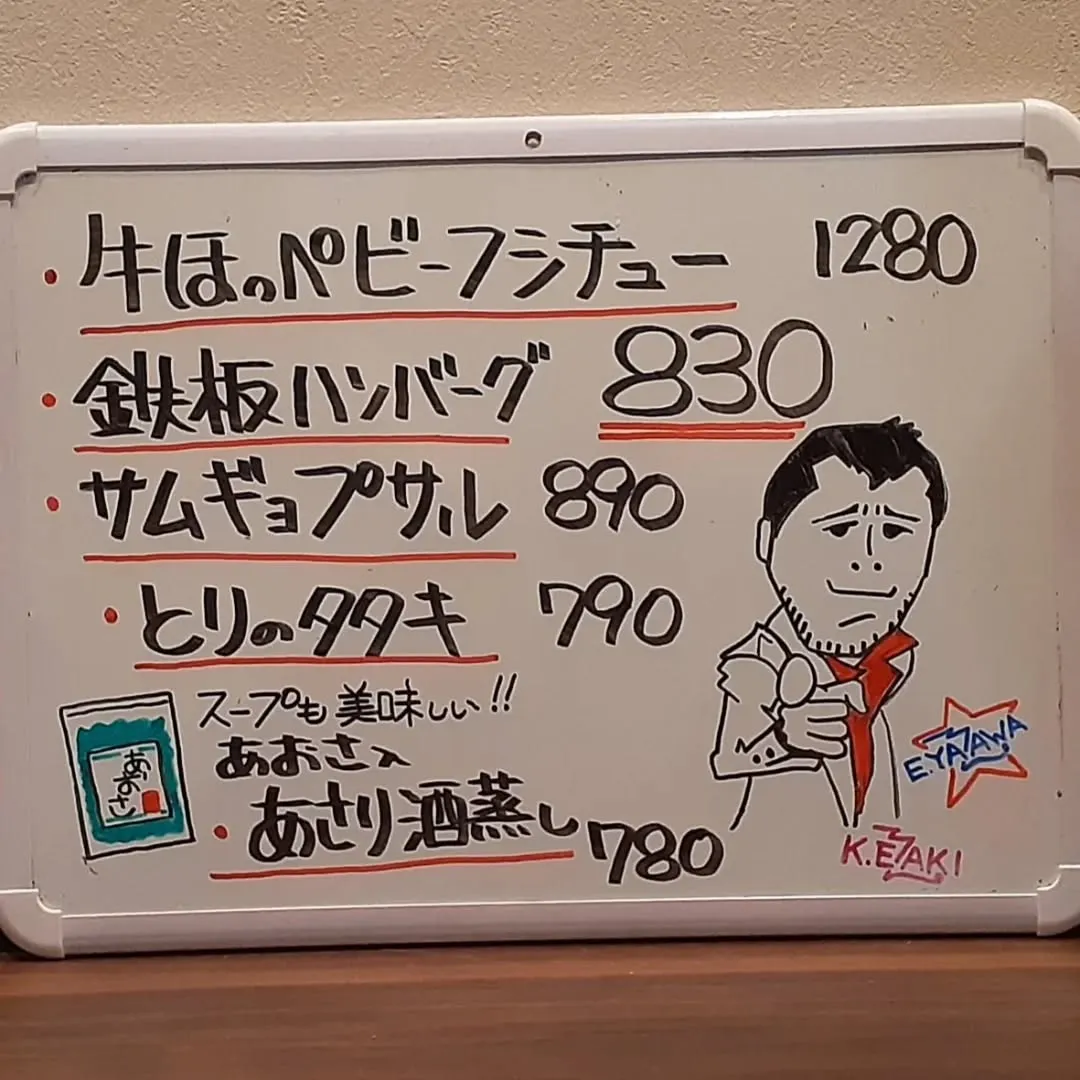 ・牛ほっペビーフシチュー 1280
・鉄板ハンバーグ 830
・サムギョプサル 890
・とりのタタキ 790
スープも美味しい!!
あおさ入
・あさり酒蒸し 780
あおさ
E.YAZAWA
K.EZAKI